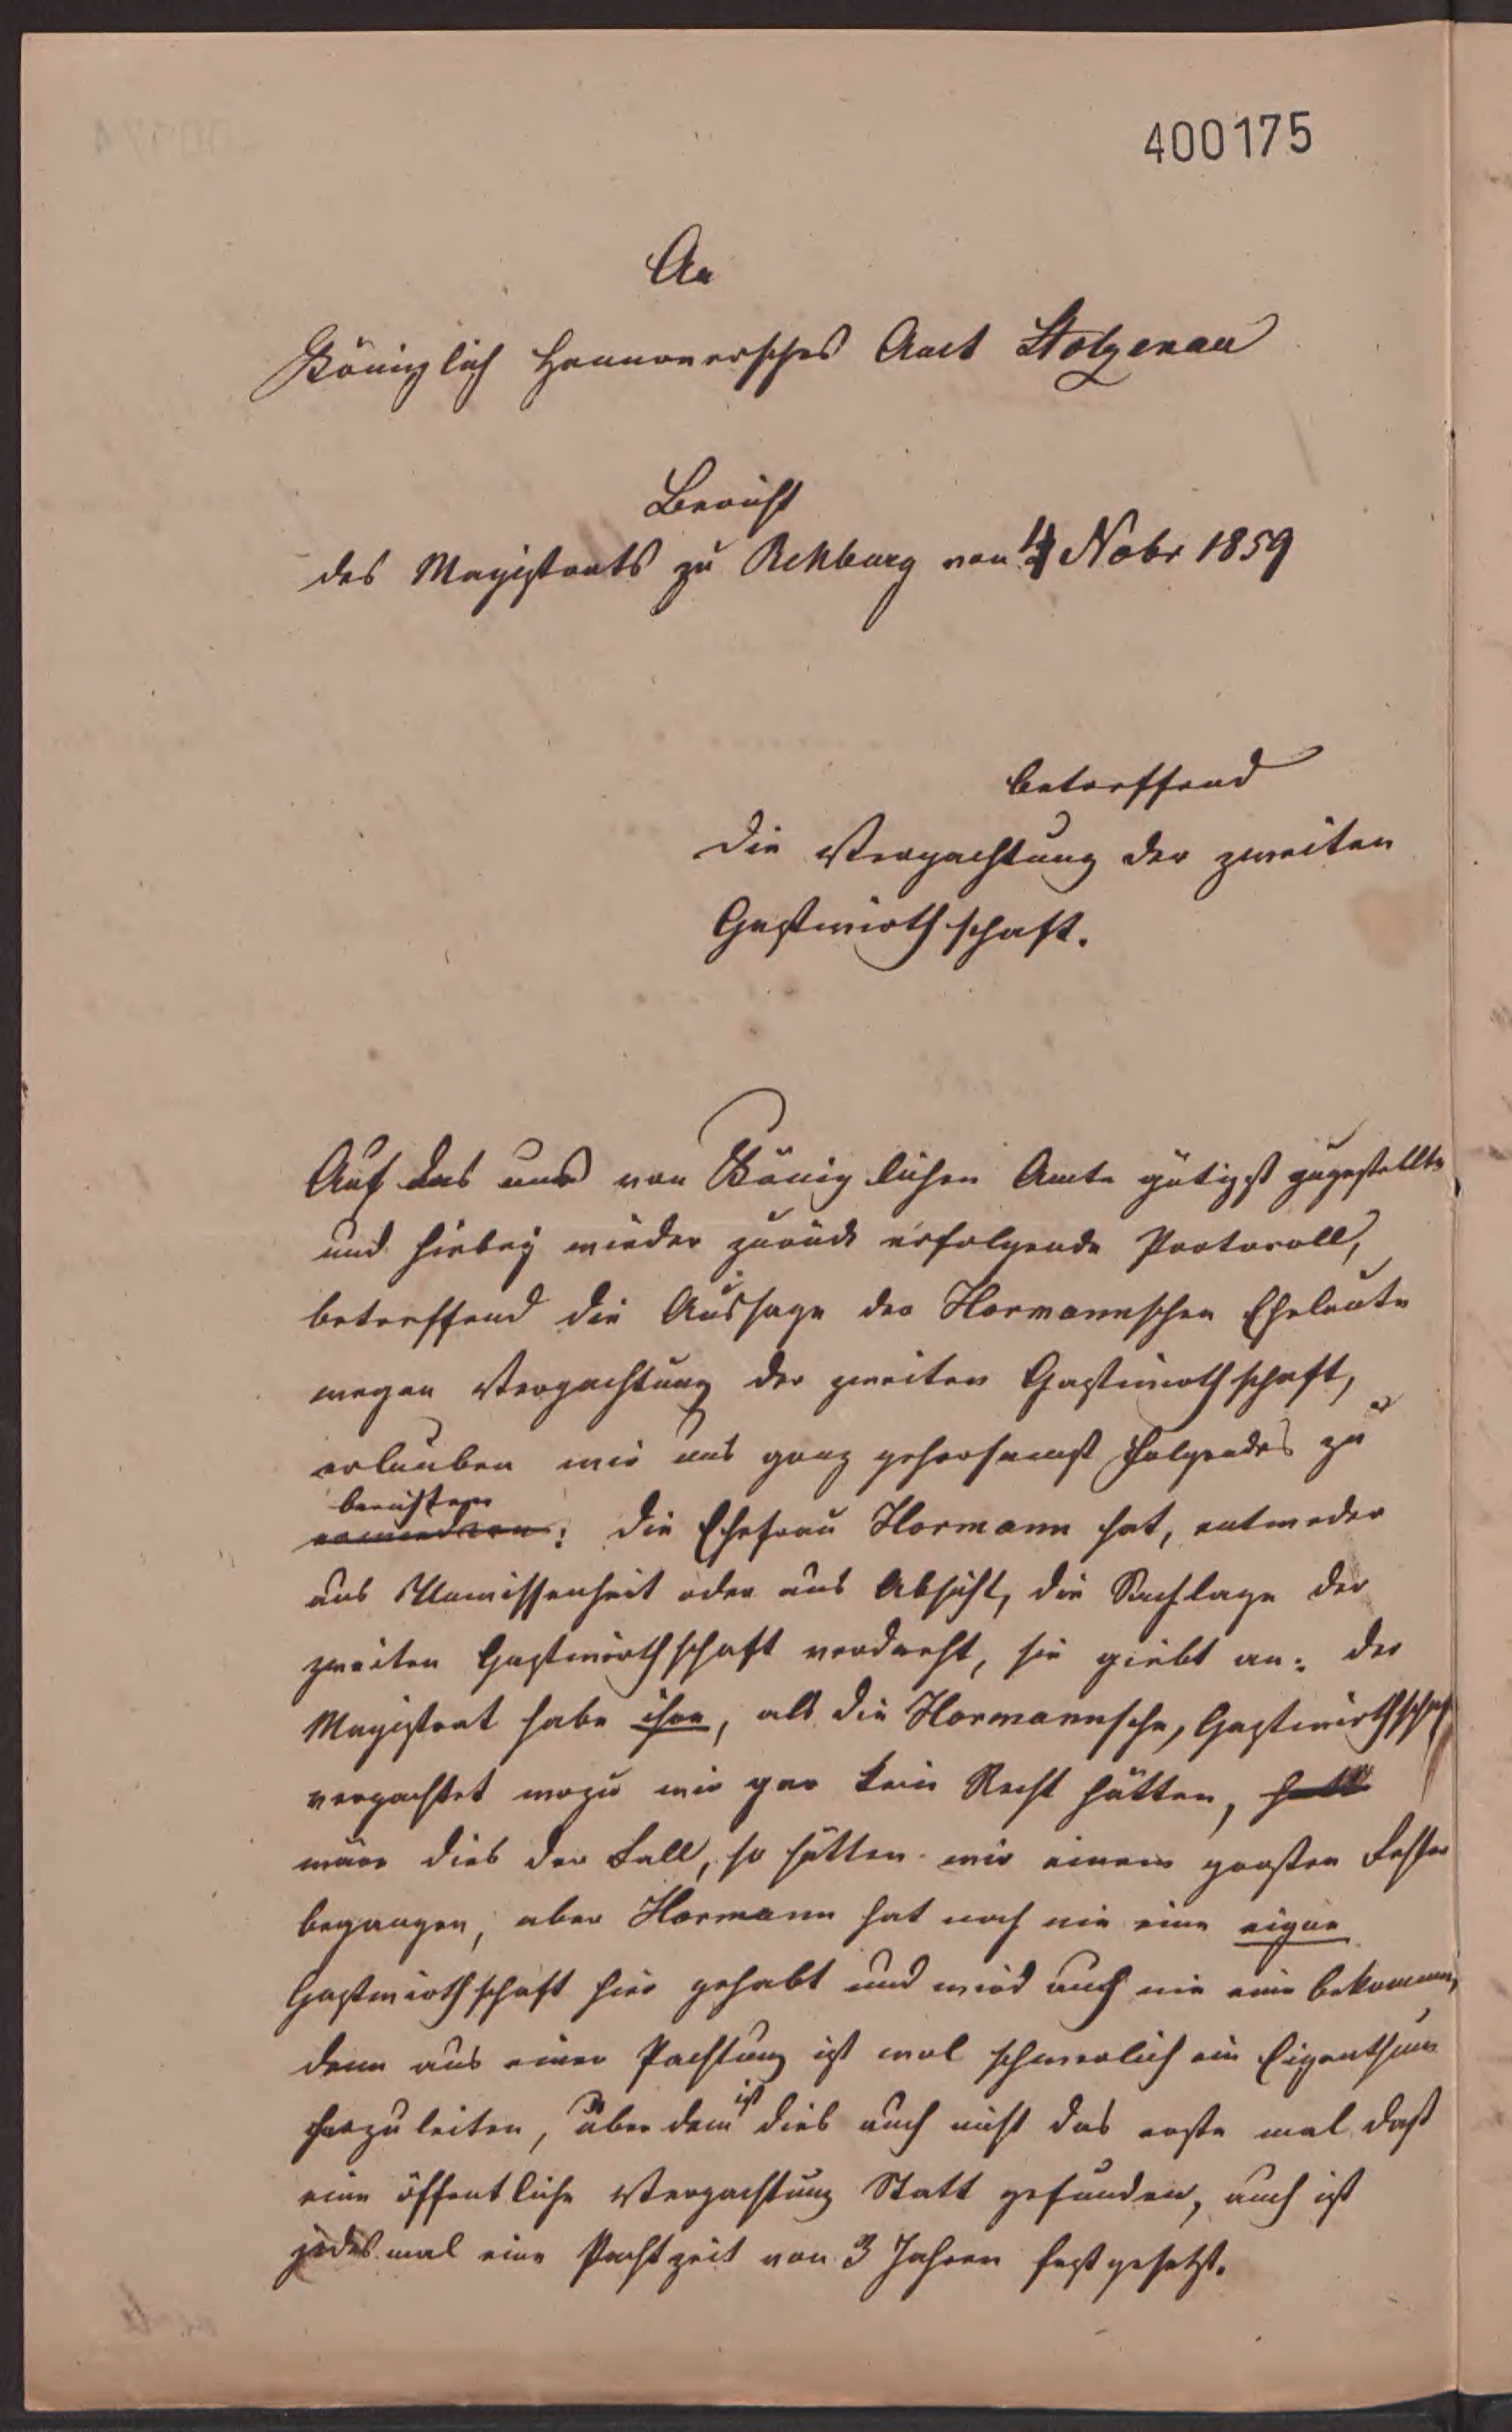 400175
An
Königlich Hannoversches Amt Stolzenau
Bericht
des Magistrats zu Rehburg von 4 Nobr 1859
betreffend
die Verpachtung der zweiten
Gastwirthschaft.
Auf das uns von Königlichen Amte gütigst zugestellte
und hiebey wieder zurück erfolgende Protocoll,
betreffend die Aussage der Hormannschen Eheleute
wegen Verpachtung der zweiten Gastwirthschaft,
erlauben wir uns ganz gehorsamst Folgendes zu
berichten
: die Ehefrau Hormann hat, entweder
aus Unwissenheit oder aus Absicht, die Sachlage der
zweiten Gastwirthschaft verdreht, sie giebt an: der
Magistrat habe ihre, als die Hormannsche, Gastwirthschaft
verpachtet wozu wir gar kein Recht hätten,
wäre dies der Fall, so hätten wir einen großen Fehler
begangen, aber Hormann hat noch nie eine eigne
Gastwirthschaft hier gehabt und wird auch nie eine bekommen,
denn aus einer Pachtung ist wol schwerlich ein Eigenthum
herzuleiten, über dem ist dies auch nicht das erste mal daß
eine öffentliche Verpachtung Statt gefunden, auch ist
jedes mal eine Pachtzeit von 3 Jahren fest gesetzt.